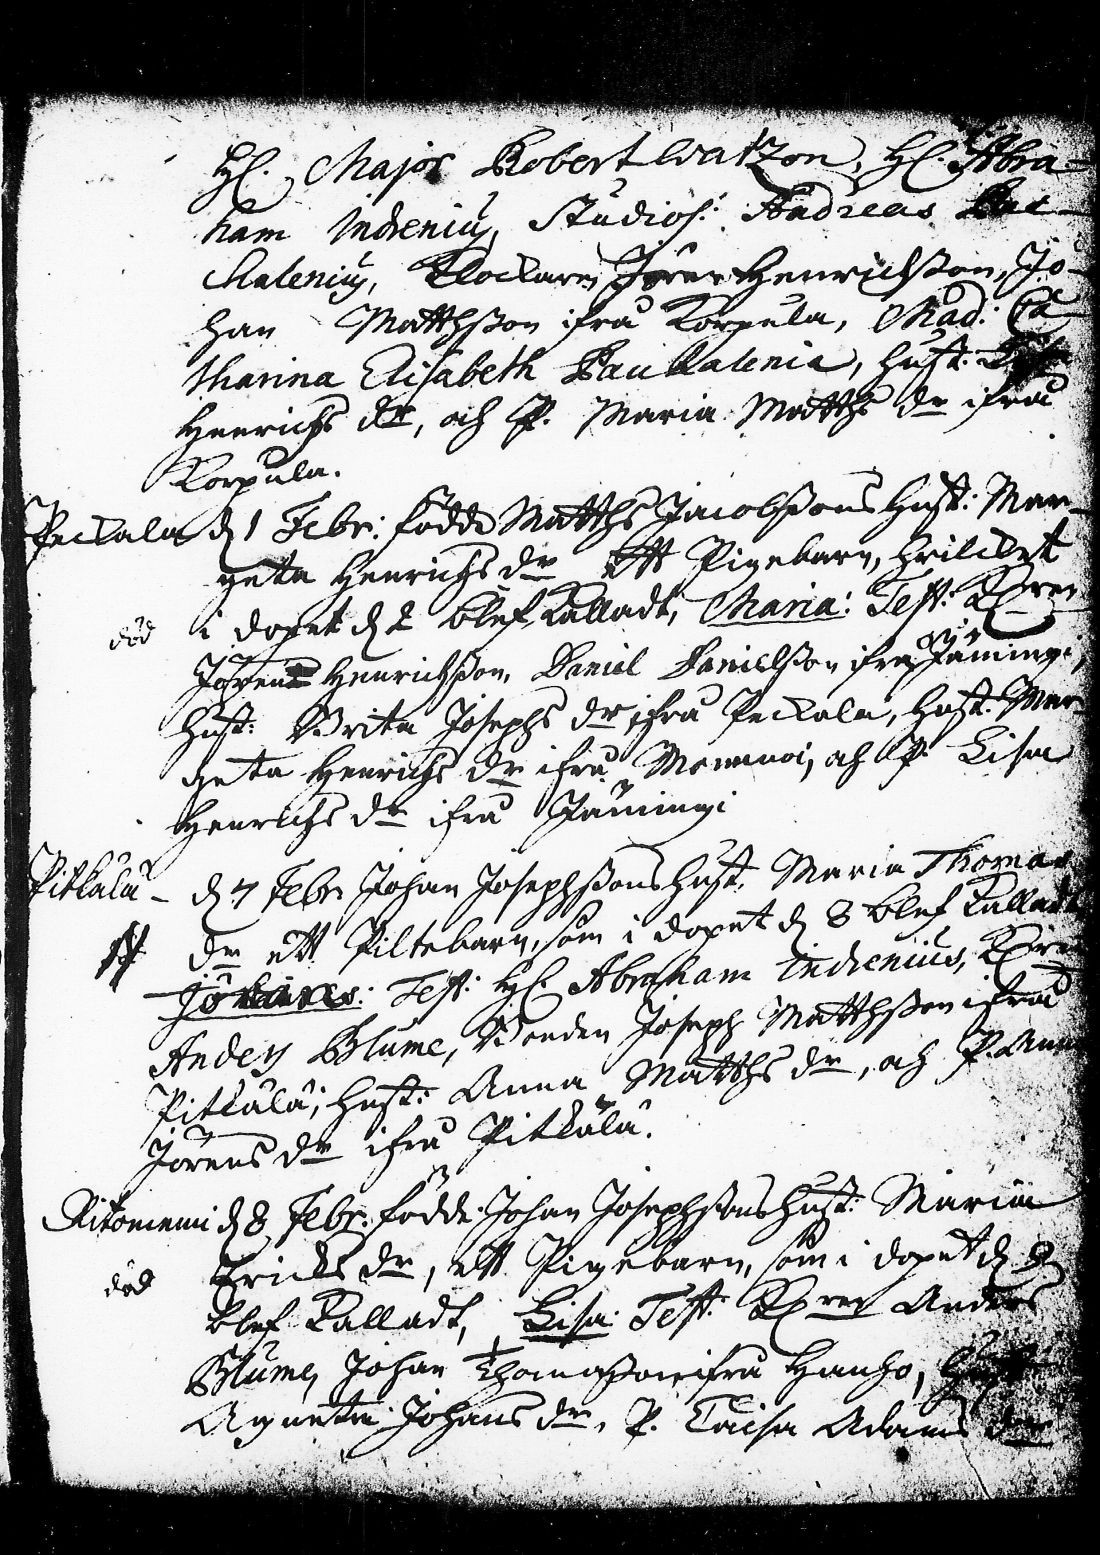 H. Major Robert Watzon, H. Abra-
ham Indrenius, Studios: Andreas Pac-
chalenius, Klockaren Jören Henrichsson, Jo-
han Matthsson ifrå Korpula, Mad: Ca-
tharina Elisabeth Pauchalenia, Hust:
Henrichs dr, och P. Maria Matths dr ifrå
Korpula.
Peckala d 1 Febr: födde Matths Jacobssons Hust: Mar-
geta Henrichs dr Ett Pigebarn, hvilcket
död i dopet d 2 blef kalladt, Maria: Test: Kl:ren
Jören Henrichsson, Daniel Danielsson ifrå Jämingi,
Hust: Brita Josephs dr ifrå Peckala, Hust: Mar-
geta Henrichs dr ifrå Mommoi, och P. Lisa
Henrichs dr ifrå Jämingi
Pitkälä - d 7 Febr: Johan Josephssons Hust: Maria Thomas
dr ett Piltebarn, som i dopet d 8 blef kalladt
Johannes: Test: H. Abraham Indrenius,
Anders Blume, Bonden Joseph Matthsson ifrå
Pitkälä, Hust: Anna Matths dr, och P. Anna
Jörens dr ifrå Pitkälä.
Ritoniemi d 8 Febr: födde Johan Josephssons Hust: Maria
Ericks dr, ett Pigebarn, som i dopet d 9
död blef kalladt, Lisa: Test: Anders
Blume, Johan Thomasson ifrå Hanho, Hust:
Agneta Johans dr, P. Caisa Adams dr